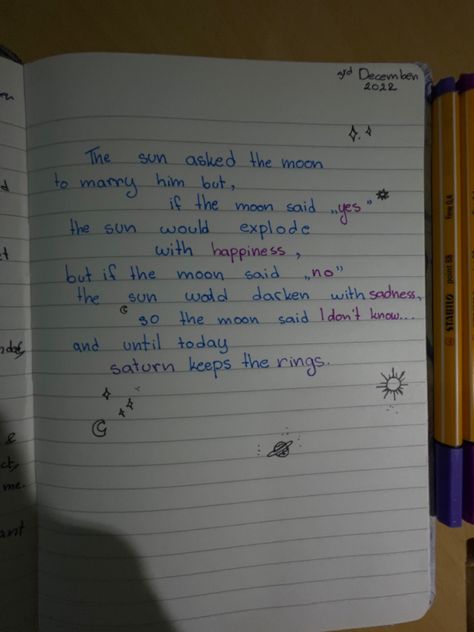 3rd December
2022
The sun asked the moon
to marry him but,
if the moon said „yes"
the sun would explode
with happiness,
but if the moon said „no"
the sun wold darken with sadness,
so the moon said I don't know...
and until today
saturn keeps the rings.
&
me.
STABILO
point 88
fine 0,4